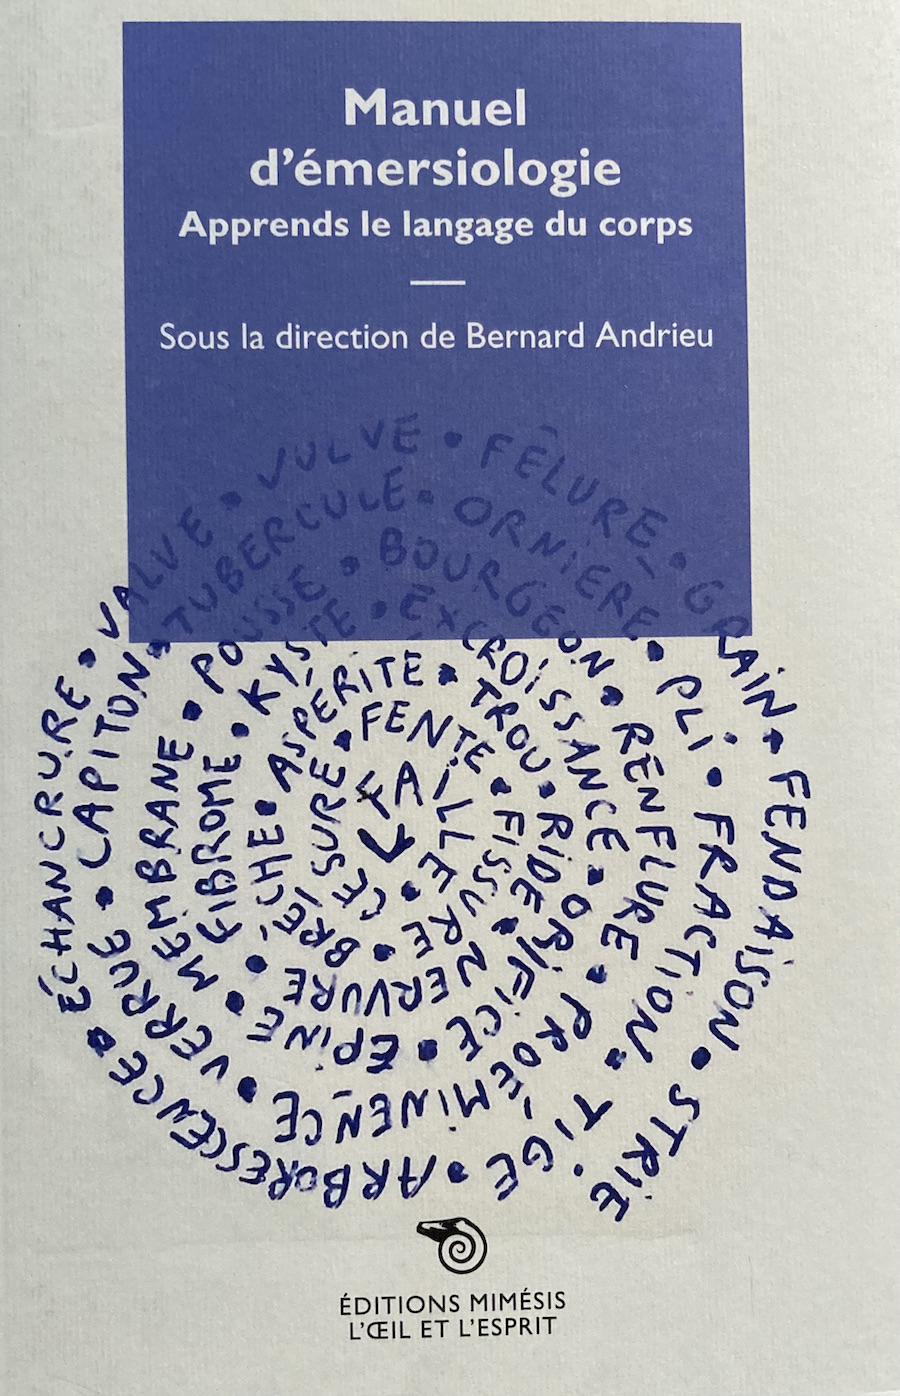 Manuel
d'émersiologie
Apprends le langage du corps
Sous la direction de Bernard Andrieu
FAILLE • CESURE • FENTE • FISSURE • BRÈCHE • ASPÉRITÉ • TROU • RIDE • NERVURE • FIBROME • KYSTE • EXCROISSANCE • ORIFICE • ÉPINE • MEMBRANE • POUSSE • BOURGEON • RENFLURE • PROÉMINENCE • VERRUE • CAPITON • TUBERCULE • ORNIÈRE • PLI • FRACTION • TIGE • ARBORESCENCE • ÉCHANCRURE • VALVE • VULVE • FÊLURE • GRAIN • FENDAISON • STRIE
ÉDITIONS MIMÉSIS
L'ŒIL ET L'ESPRIT